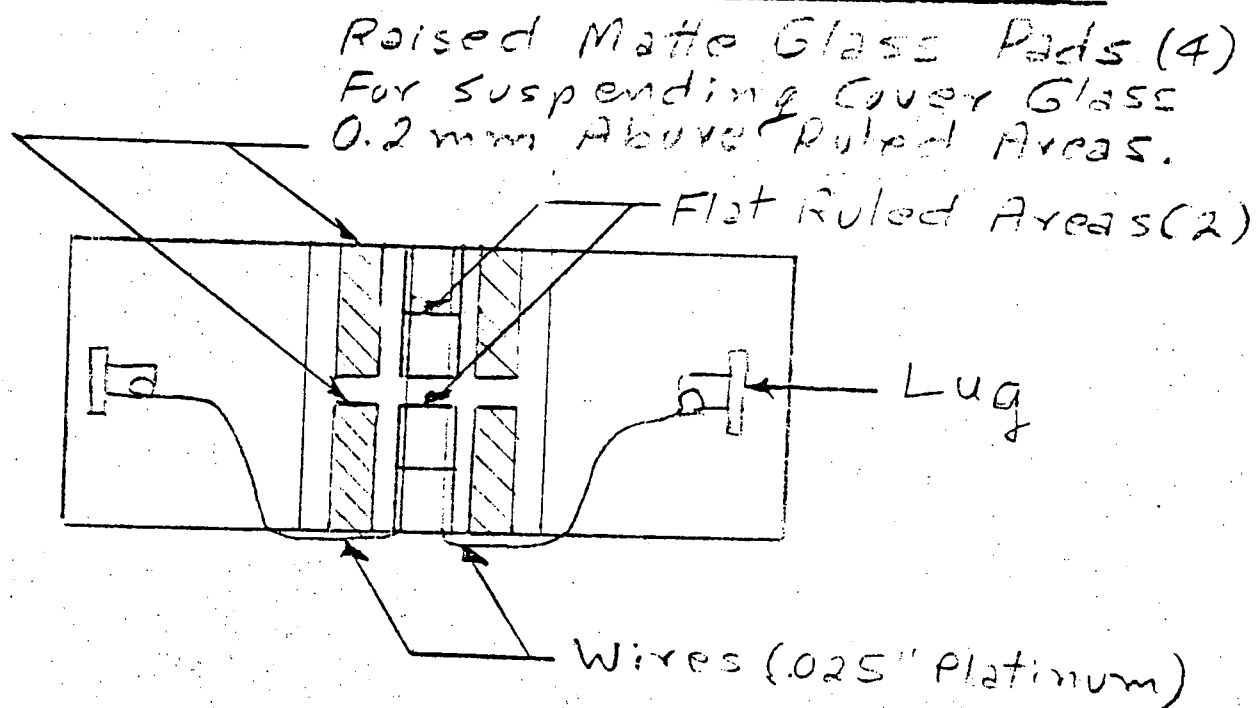 Raised Matte Glass Pads (4)
For Suspending Cover Glass
0.2 mm Above Ruled Areas.
Flat Ruled Areas (2)
Lug
Wires (.025" Platinum)